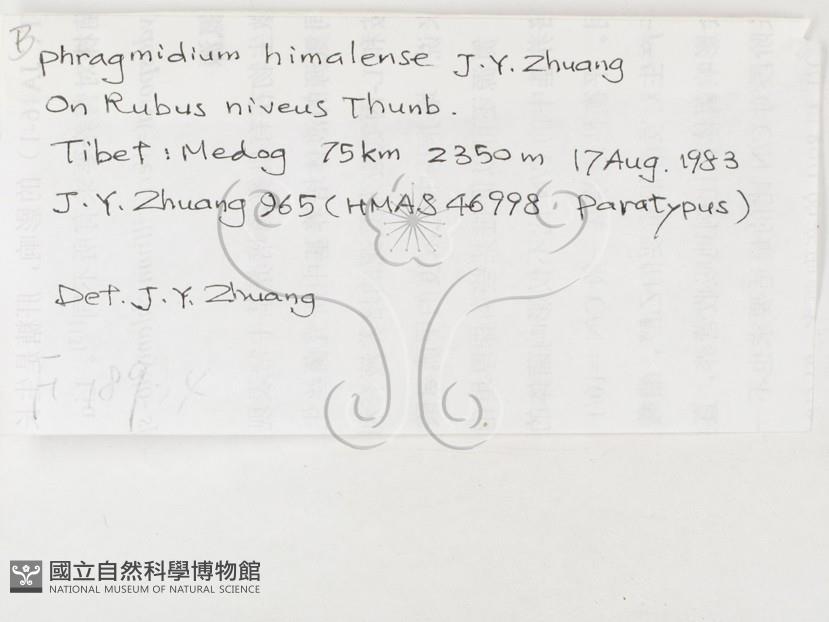 B
phragmidium himalense J.Y. Zhuang
On Rubus niveus Thunb.
Tibet : Medog 75km 2350m 17 Aug. 1983
J.Y. Zhuang 965 (HMAS 46998 . Paratypus)
Det. J.Y. Zhuang
國立自然科學博物館
NATIONAL MUSEUM OF NATURAL SCIENCE